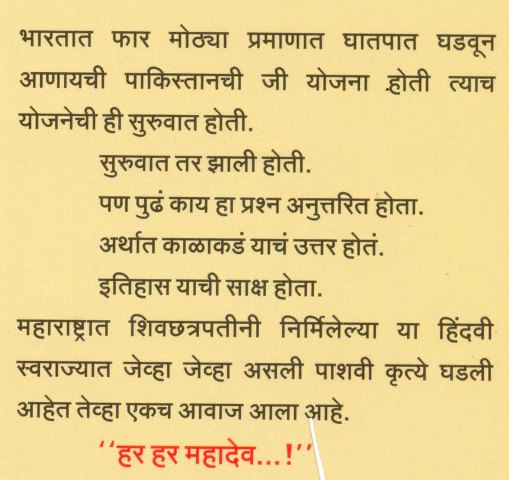 भारतात फार मोठ्या प्रमाणात घातपात घडवून
आणायची पाकिस्तानची जी योजना होती त्याच
योजनेची ही सुरुवात होती.
सुरुवात तर झाली होती.
पण पुढं काय हा प्रश्न अनुत्तरित होता.
अर्थात काळाकडं याचं उत्तर होतं.
इतिहास याची साक्ष होता.
महाराष्ट्रात शिवछत्रपतीनी निर्मिलेल्या या हिंदवी
स्वराज्यात जेव्हा जेव्हा असली पाशवी कृत्ये घडली
आहेत तेव्हा एकच आवाज आला आहे.
‘‘हर हर महादेव...!’’